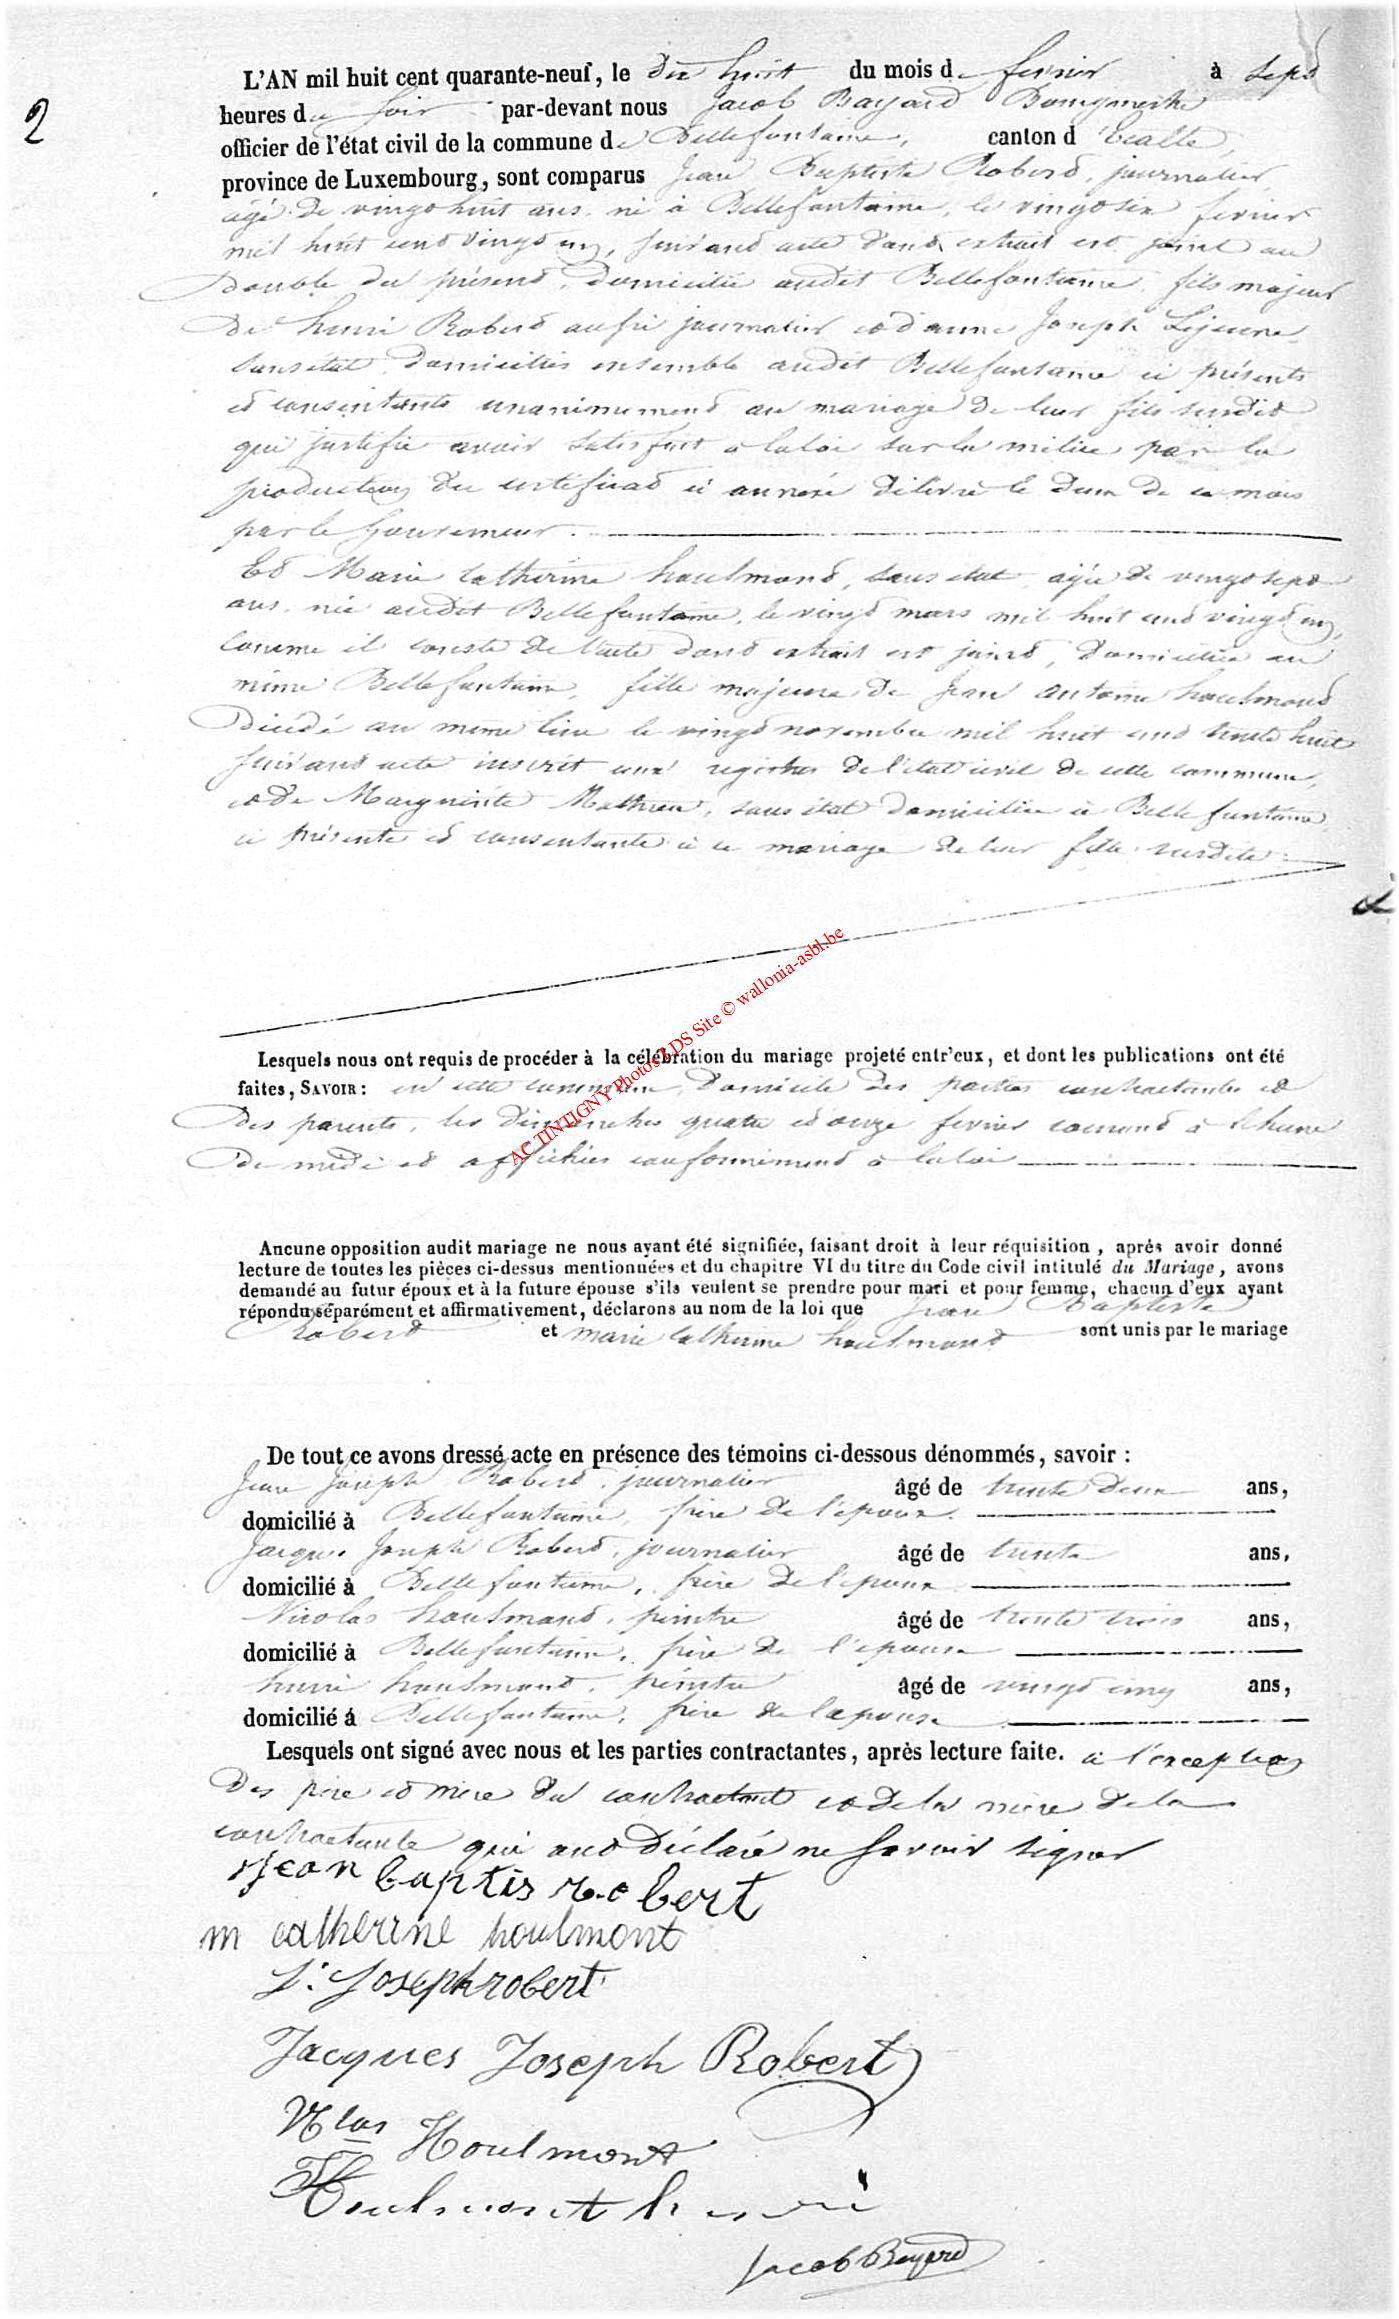 2
L'AN mil huit cent quarante-neuf, le dix huit du mois de fevrier à sept
heures du soir par-devant nous Jacob Bayard Bourgmestre
officier de l'état civil de la commune de Bellefontaine, canton d'Etalle,
province de Luxembourg, sont comparus Jean Baptiste Robert, journalier,
agé de vingt huit ans, né à Bellefontaine, le vingt six fevrier
mil huit cent vingt un, suivant acte dont extrait est joint au
double du présent, domicilié audit Bellefontaine, fils majeur
de henri Robert aussi journalier et d'anne Joseph Lejeune
sans etat, domiciliés ensemble audit Bellefontaine ci présents
et consentants unanimement au mariage de leur fils susdit
qui justifie avoir satisfait à la loi sur la milice par la
production du certificat ci annexé délivré le deux de ce mois
par le Gouverneur.
Et Marie Catherine houlmont, sans etat, agée de vingt sept
ans, née audit Bellefontaine, le vingt mars mil huit cent vingt un,
comme il conste de l'acte dont extrait est joint, domiciliée au
même Bellefontaine, fille majeure de Jean antoine houlmont
décédé au même lieu le vingt novembre mil huit cent trente huit
suivant acte inscrit aux registres de l'état civil de cette commune,
et de Marguerite Mathieu, sans état domiciliée à Bellefontaine
ci présente et consentante à ce mariage de leur fille susdite
Lesquels nous ont requis de procéder à la célébration du mariage projeté entr'eux, et dont les publications ont été
faites, SAVOIR : en cette commune, domicile des parties contractantes et
des parents, les dimanches quatre et onze fevrier courant à l'heure
de midi et affichées conformément à la loi
AC TINTIGNY Photos LDS Site © wallonia-asbl.be
Aucune opposition audit mariage ne nous ayant été signifiée, faisant droit à leur réquisition, après avoir donné
lecture de toutes les pièces ci-dessus mentionnées et du chapitre VI du titre du Code civil intitulé du Mariage, avons
demandé au futur époux et à la future épouse s'ils veulent se prendre pour mari et pour femme, chacun d'eux ayant
répondu séparément et affirmativement, déclarons au nom de la loi que Jean Baptiste
Robert et marie Catherine houlmont sont unis par le mariage
De tout ce avons dressé acte en présence des témoins ci-dessous dénommés, savoir :
Jean Joseph Robert, journalier âgé de trente deux ans,
domicilié à Bellefontaine, frère de l'époux.
Jacques Joseph Robert, journalier âgé de trente ans,
domicilié à Bellefontaine, frère de l'époux
Nicolas houlmont, peintre âgé de trente trois ans,
domicilié à Bellefontaine, frère de l'épouse
henri houlmont, peintre âgé de vingt cinq ans,
domicilié à Bellefontaine, frère de l'epouse
Lesquels ont signé avec nous et les parties contractantes, après lecture faite. à l'exception
des père et mère du contractant et de la mère de la
contractante qui ont déclaré ne savoir signer
jean baptis robert
m catherine houlmont
J: Joseph robert
Jacques Joseph Robert
Nlas Houlmont
Houlmont henri
Jacob Bayard